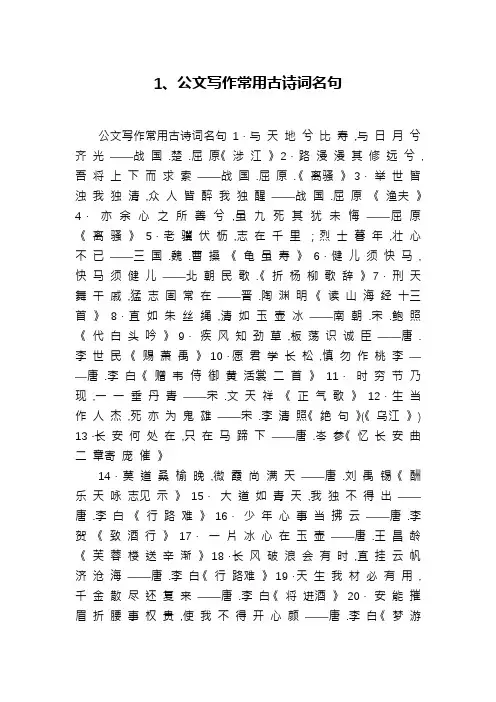 1、公文写作常用古诗词名句
公文写作常用古诗词名句 1·与天地兮比寿,与日月兮
齐光——战国.楚.屈原《涉江》2·路漫漫其修远兮,
吾将上下而求索——战国.屈原.《离骚》3·举世皆
浊我独清,众人皆醉我独醒——战国.屈原《渔夫》
4·亦余心之所善兮,虽九死其犹未悔——屈原
《离骚》5·老骥伏枥,志在千里;烈士暮年,壮心
不已——三国.魏.曹操《龟虽寿》6·健儿须快马,
快马须健儿——北朝民歌.《折杨柳歌辞》7·刑天
舞干戚,猛志固常在——晋.陶渊明《读山海经十三
首》8·直如朱丝绳,清如玉壶冰——南朝.宋.鲍照
《代白头吟》9·疾风知劲草,板荡识诚臣——唐.
李世民《赐萧禹》10·愿君学长松,慎勿作桃李—
—唐.李白《赠韦侍御黄活裳二首》11·时穷节乃
现,一一垂丹青——宋.文天祥《正气歌》12·生当
作人杰,死亦为鬼雄——宋.李清照《绝句》(《乌江》)
13·长安何处在,只在马蹄下——唐.岑参《忆长安曲
二章寄庞催》
14·莫道桑榆晚,微霞尚满天——唐.刘禹锡《酬
乐天咏志见示》15·大道如青天,我独不得出——
唐.李白《行路难》16·少年心事当拂云——唐.李
贺《致酒行》17·一片冰心在玉壶——唐.王昌龄
《芙蓉楼送辛渐》18·长风破浪会有时,直挂云帆
济沧海——唐.李白《行路难》19·天生我材必有用,
千金散尽还复来——唐.李白《将进酒》20·安能摧
眉折腰事权贵,使我不得开心颜——唐.李白《梦游